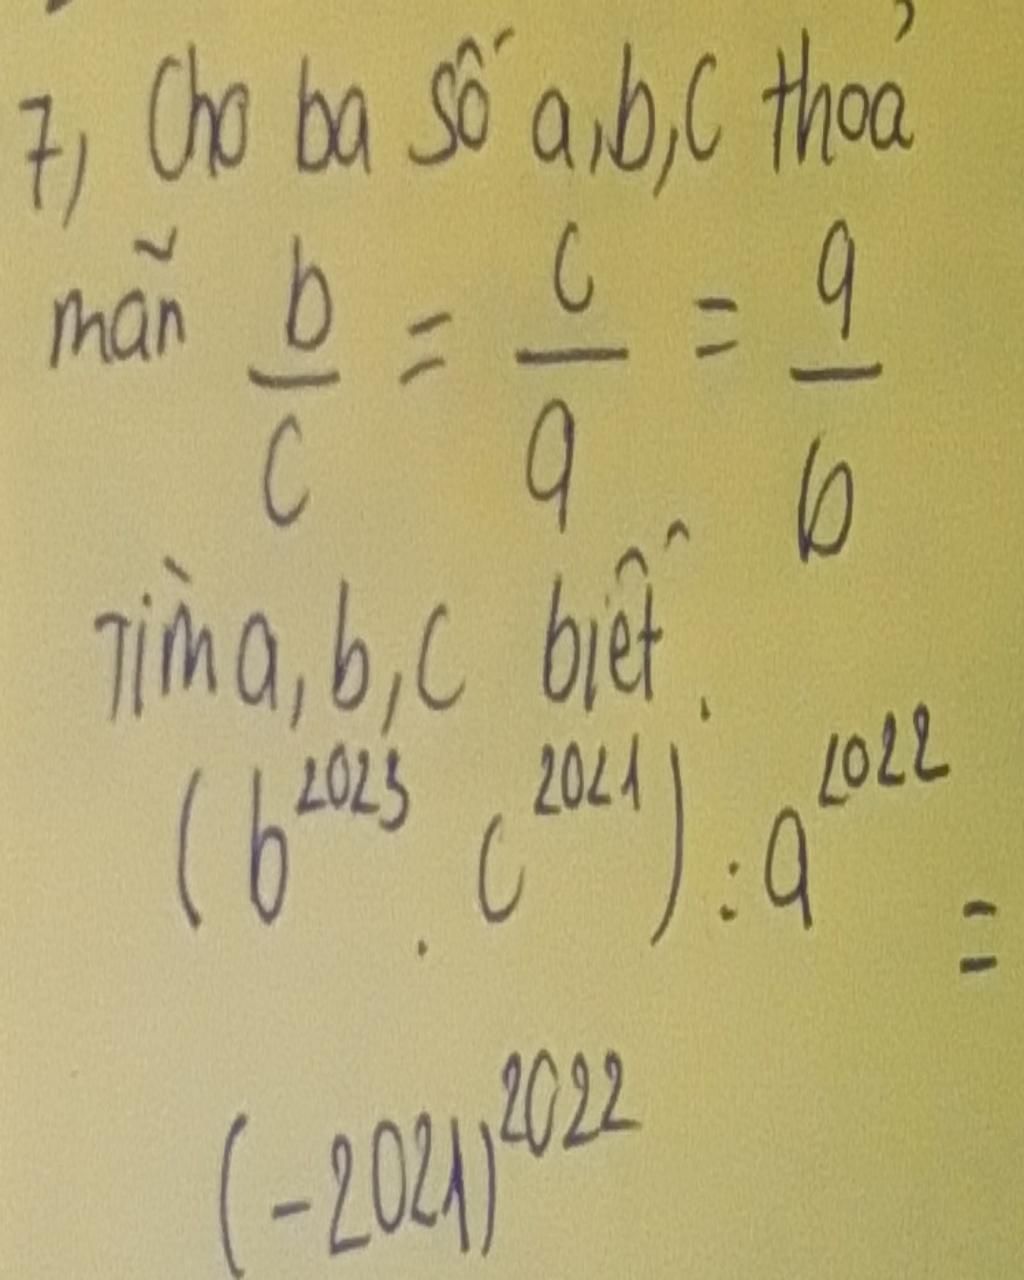 7, Cho ba số a,b,c thoả
mãn b/c = c/a = a/b
Tìm a, b, c biết.
(b^2023 . c^2021) : a^2022 =
(-2021)^2022